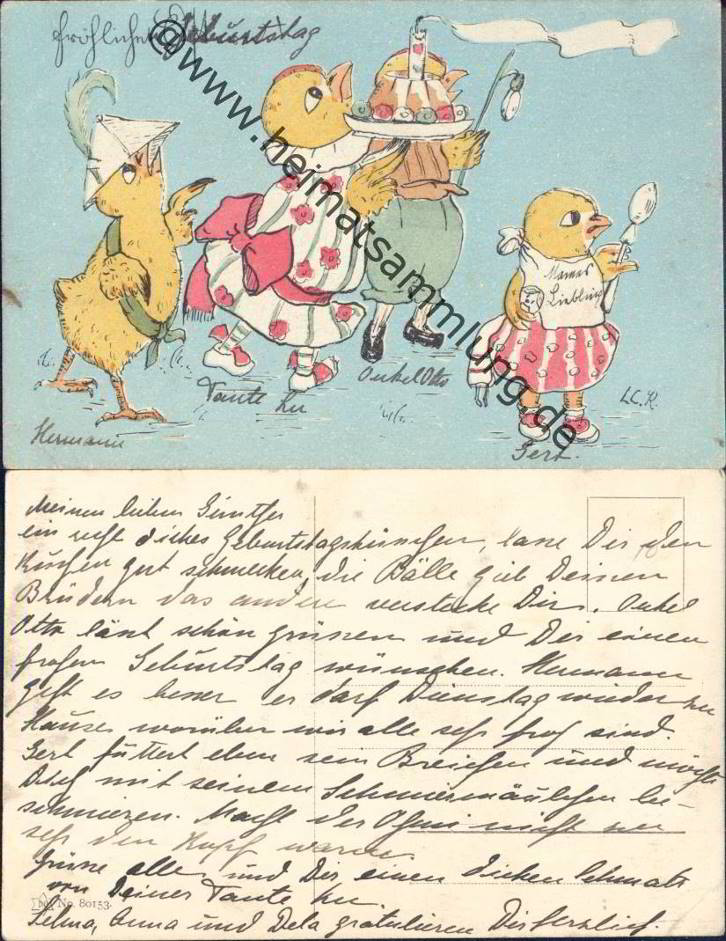 fröhlichen Geburtstag
@www.heimatsammlung.de
Mamas
Liebling
Onkel Otto
Tante Lu
L.C.K.
Hermann
Gert.
Meinem lieben Günther
ein recht dickes Geburtstagsküsschen, lasse Dir den
Kuchen gut schmecken, die Bälle gieb Deinen
Brüdern das andere verstecke Dir. Onkel
Otto lässt schön grüssen und Dir einen
frohen Geburtstag wünschen. Hermann
geht es besser er darf Dienstag wieder zu
Hause worüber wir alle sehr froh sind.
Gert füttert eben sein Breichen und möchte
Dich mit seinem Schmiermäulchen be-
schmieren. Macht der Omi nicht zu
sehr den Kopf warm
Grüsse alle und Dir einen dicken Schmatz
von Deiner Tante Lu.
No. 80153.
Selma, Anna und Dela gratulieren Dir herzlich.